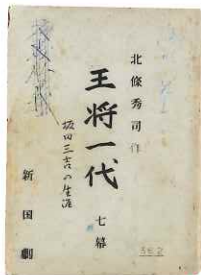 北條秀司作
王将一代
七幕
坂田三吉の生涯
新国劇